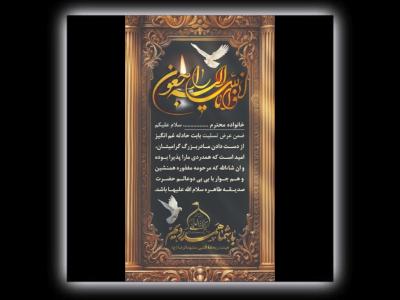 انا لله و انا الیه راجعون
خانواده محترم .............. سلام علیکم
ضمن عرض تسلیت بابت حادثه غم انگیز
از دست دادن مادربزرگ گرامیتان،
امید است که همدردی مارا پذیرا بوده
و ان شاءالله که مرحومه مغفوره همنشین
و هم جوار با بی بی دوعالم حضرت
صدیقه طاهره سلام الله علیها باشد.